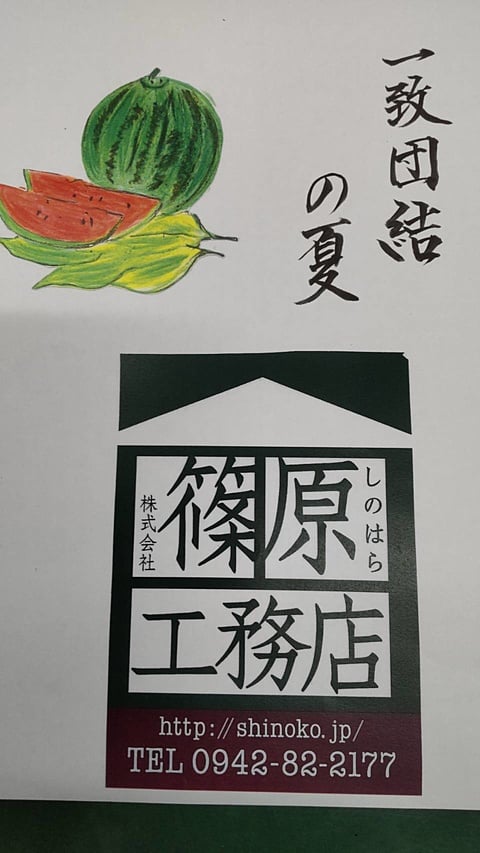 一致団結
の夏
株式会社
篠原
しのはら
工務店
http://shinoko.jp/
TEL 0942-82-2177